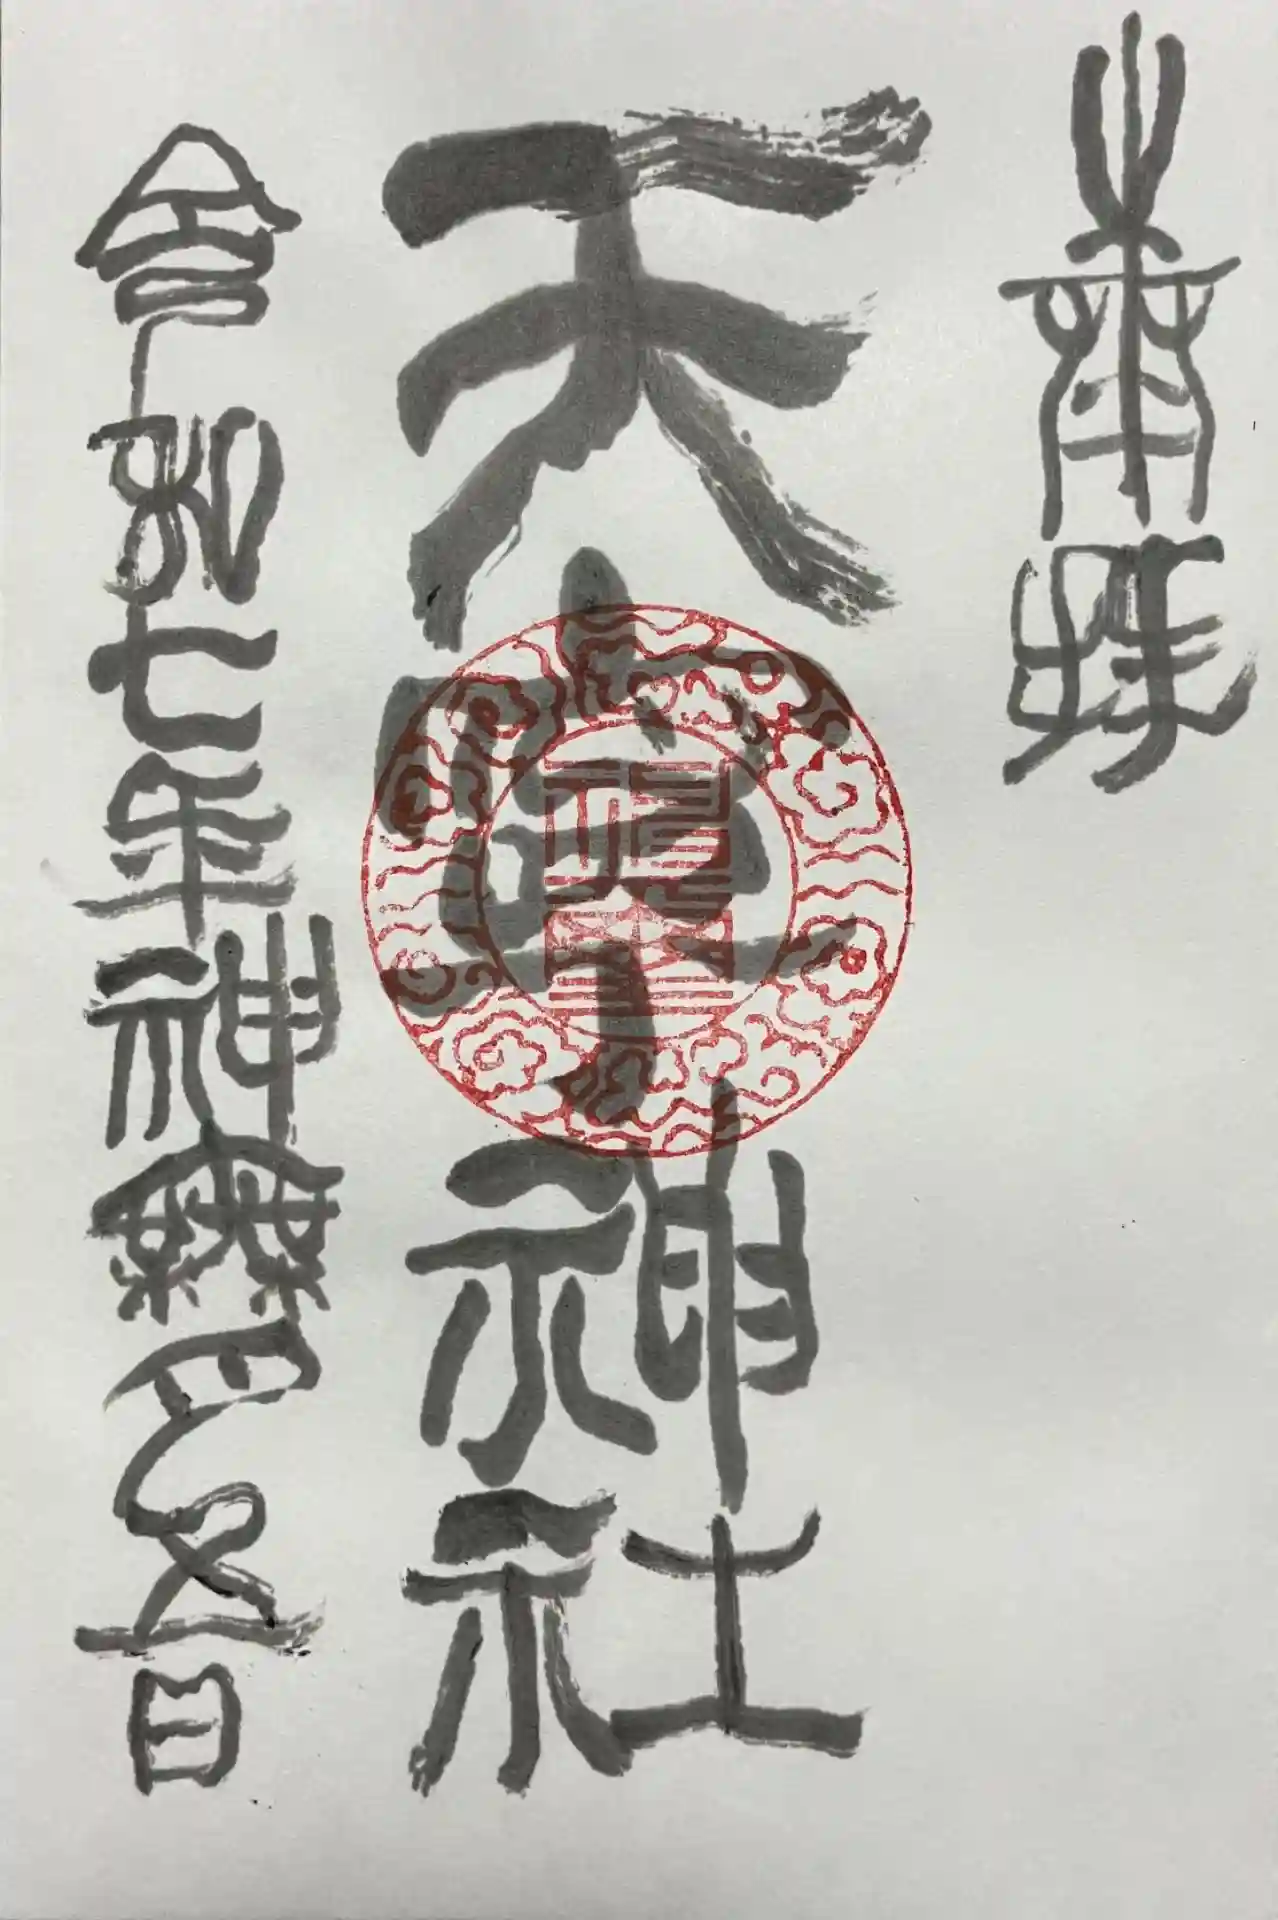 奉拝
天 神社
令和七年神無月五日